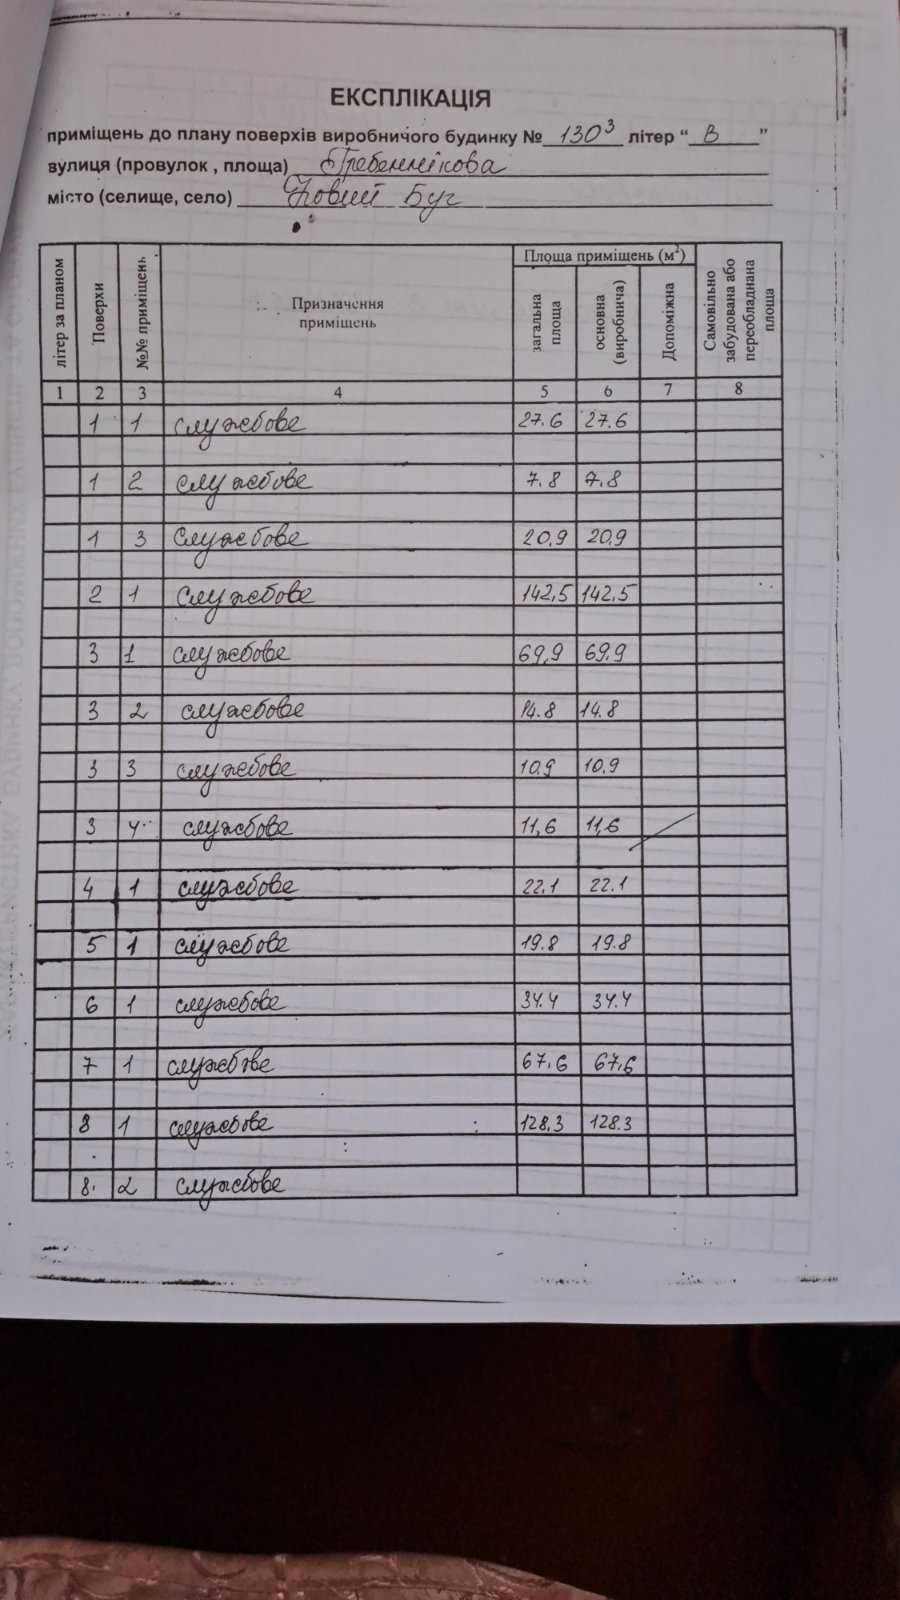 ЕКСПЛІКАЦІЯ
приміщень до плану поверхів виробничого будинку № 130³ літер “ В ”
вулиця (провулок , площа) Гребеннікова
місто (селище, село) Новий Буг
літер за планом Поверхи №№ приміщень Призначення приміщень Площа приміщень (м²) загальна площа основна (виробнича) Допоміжна Самовільно забудована або переобладнана площа
1 2 3 4 5 6 7 8
1 1 службове 27.6 27.6
1 2 службове 7.8 7.8
1 3 службове 20,9 20,9
2 1 службове 142,5 142,5
3 1 службове 69,9 69.9
3 2 службове 14.8 14.8
3 3 службове 10,9 10,9
3 4 службове 11,6 11,6
4 1 службове 22.1 22.1
5 1 службове 19.8 19.8
6 1 службове 34.4 34.4
7 1 службове 67.6 67.6
8 1 службове 128.3 128.3
8. 2 службове